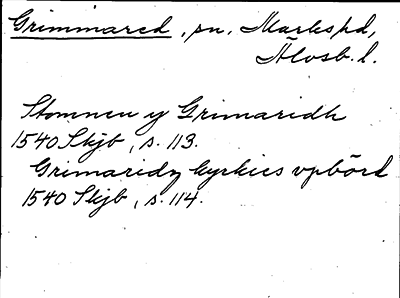 Grimmared, sn, Marks hd,
Älvsb. l.
Stomnen y Grimaridh
1540 Skjb, s. 113.
Grimaridz kyrkies vpbörd
1540 Skjb, s. 114.